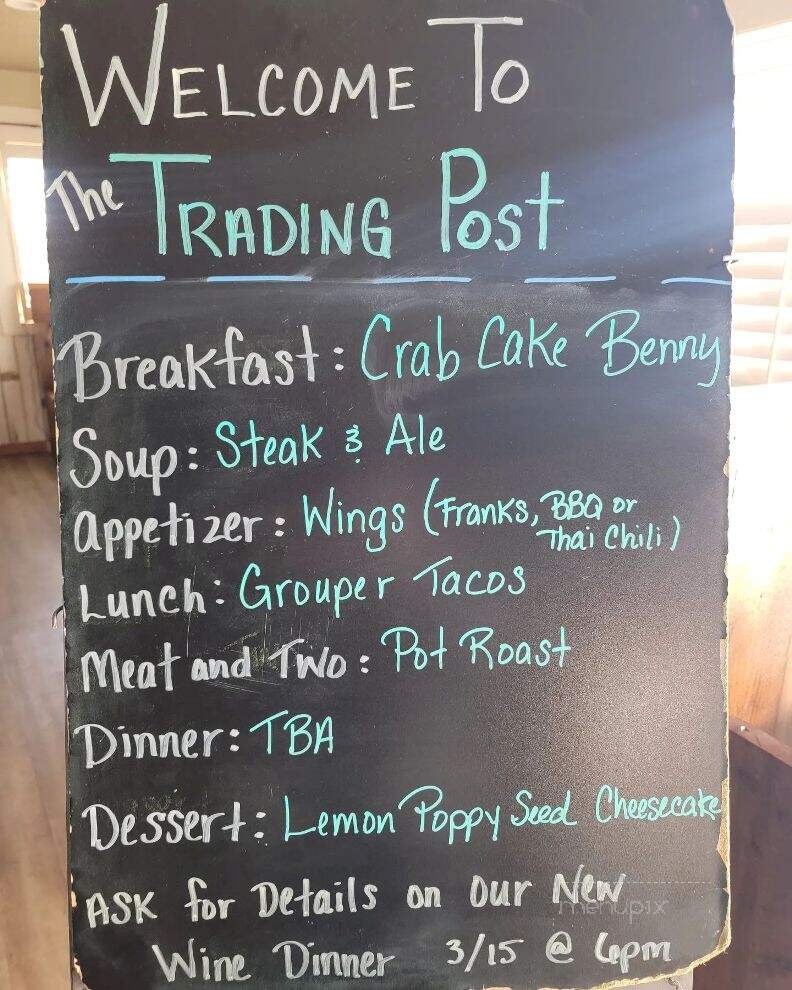 WELCOME TO
The TRADING Post
Breakfast: Crab Cake Benny
Soup: Steak & Ale
Appetizer: Wings (Franks, BBQ or
Thai Chili)
Lunch: Grouper Tacos
Meat and Two: Pot Roast
Dinner: TBA
Dessert: Lemon Poppy Seed Cheesecake
ASK for Details on our New
menupix
Wine Dinner 3/15 @ 6pm